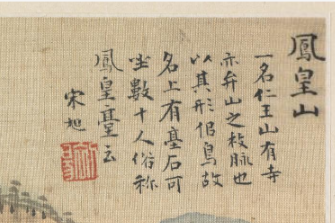 鳳皇山
一名仁王山有寺
亦弁山之枝脉也
以其形佀鳥故
名上有䑓石可
坐數十人俗称
鳳皇臺云
宋旭